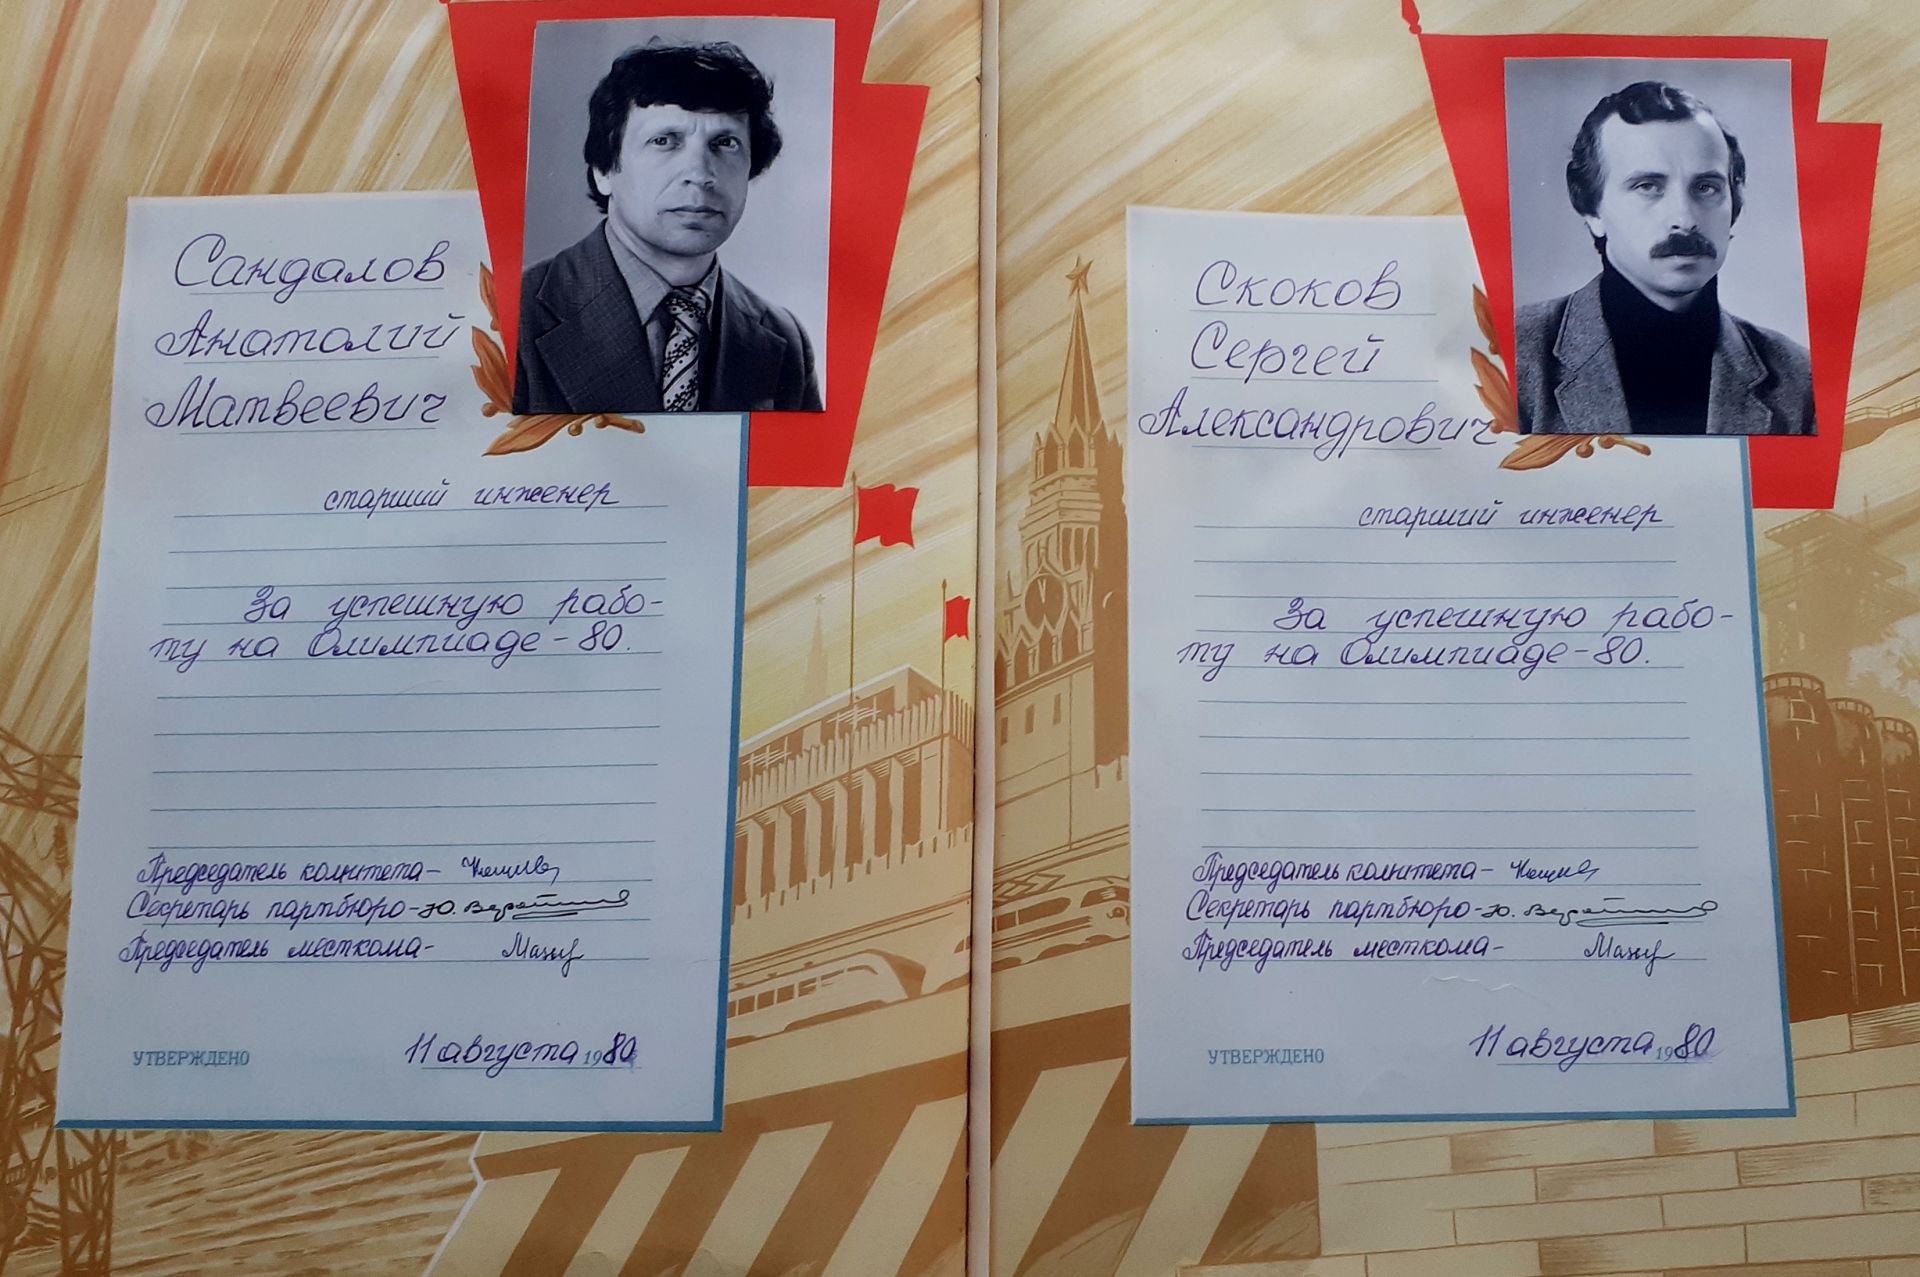 Сандалов
Анатолий
Матвеевич
старший инженер
За успешную рабо-
ту на Олимпиаде-80.
Председатель комитета-
Секретарь партбюро-Ю.
Председатель месткома-
УТВЕРЖДЕНО 11 августа 1980
Скоков
Сергей
Александрович
старший инженер
За успешную рабо-
ту на Олимпиаде-80.
Председатель комитета-
Секретарь партбюро-Ю.
Председатель месткома-
УТВЕРЖДЕНО 11 августа 1980